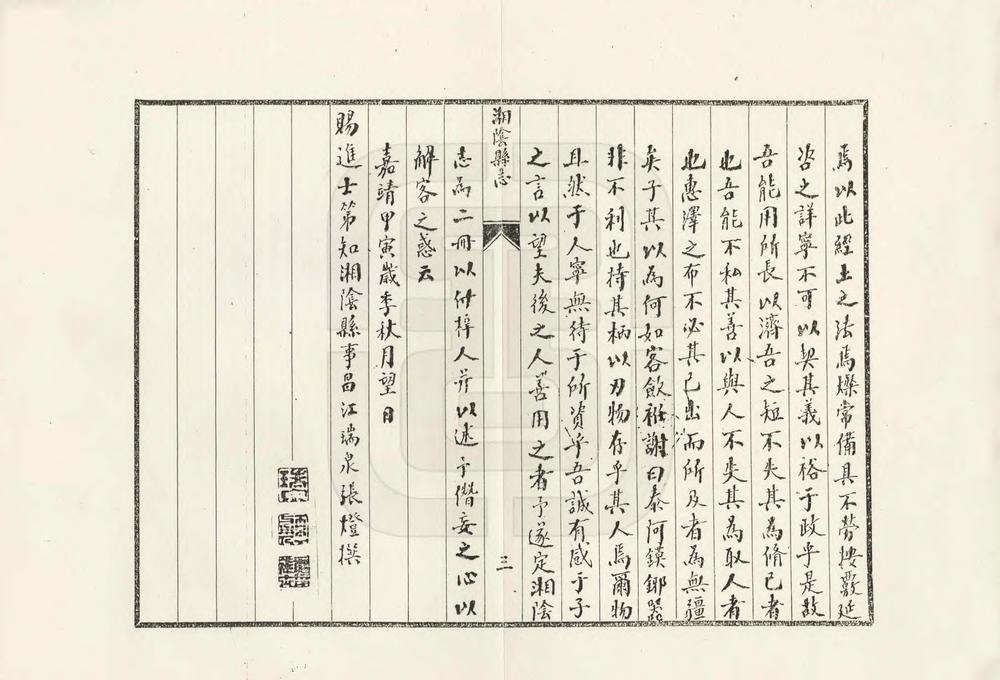 焉以此經土之法焉燦常備具不勞搜覈延
咨之詳寧不可以契其義以裕于政乎是故
吾能用所長以濟吾之短不失其為脩己者
也吾能不私其善以與人不失其為取人者
也惠澤之布不必其己出而所及者為無疆
矣子其以為何如客斂袵謝曰泰阿鏌鋣器
非不利也持其柄以刃物存乎其人焉爾物
且然于人寧無待于所資乎吾誠有感于子
之言以望夫後之人善用之者予遂定湘陰
湘陰縣志
三
志為二冊以付梓人并以述予僭妄之心以
解客之惑云
嘉靖甲寅歲季秋月望日
賜進士第知湘陰縣事昌江端泉張燈撰